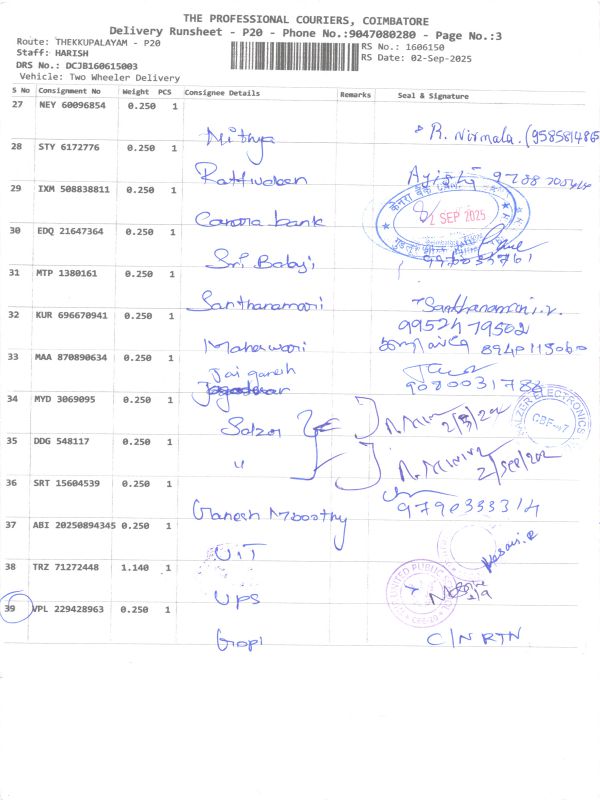 THE PROFESSIONAL COURIERS, COIMBATORE
Delivery Runsheet - P20 - Phone No.:9047080280 - Page No.:3
Route: THEKKUPALAYAM - P20
Staff: HARISH
RS No.: 1606150
DRS No.: DCJB160615003
RS Date: 02-Sep-2025
Vehicle: Two Wheeler Delivery
S No Consignment No Weight PCS Consignee Details Remarks Seal & Signature
27 NEY 60096854 0.250 1
Nithya R. Nirmala. (9585814865
28 STY 6172776 0.250 1
29 IXM 508838811 0.250 1
Canara bank 2 SEP 2025
30 EDQ 21647364 0.250 1
Sri Babyi
31 MTP 1380161 0.250 1
Santhanamari Santhanamari.v.
32 KUR 696670941 0.250 1
9952479502
Maheswari 8940115060
33 MAA 870890634 0.250 1
Jai ganesh
9080031788
34 MYD 3069095 0.250 1
Salzer
SALZER ELECTRONICS
35 DDG 548117 0.250 1
"
36 SRT 15604539 0.250 1
Ganesh Moorthy 9790333314
37 ABI 20250894345 0.250 1
UIT
38 TRZ 71272448 1.140 1
UPS
UNITED PUBLIC
39 VPL 229428963 0.250 1
Gopi C/N RTN